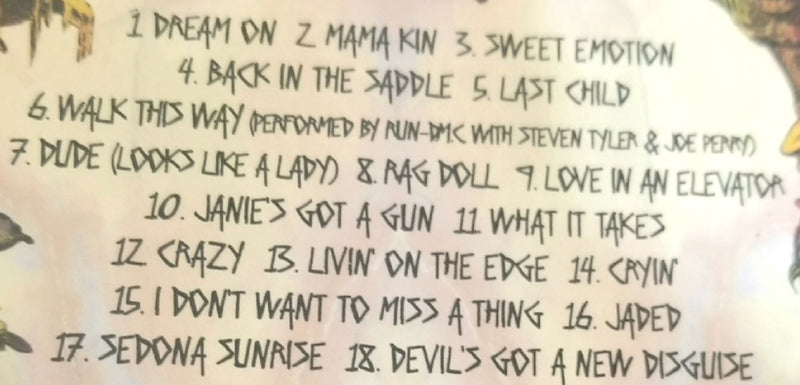 1 DREAM ON 2 MAMA KIN 3. SWEET EMOTION
4. BACK IN THE SADDLE 5. LAST CHILD
6. WALK THIS WAY (PERFORMED BY RUN-DMC WITH STEVEN TYLER & JOE PERRY)
7. DUDE (LOOKS LIKE A LADY) 8. RAG DOLL 9. LOVE IN AN ELEVATOR
10. JANIE'S GOT A GUN 11 WHAT IT TAKES
12 CRAZY 13. LIVIN' ON THE EDGE 14. CRYIN'
15. I DON'T WANT TO MISS A THING 16. JADED
17. SEDONA SUNRISE 18. DEVIL'S GOT A NEW DISGUISE